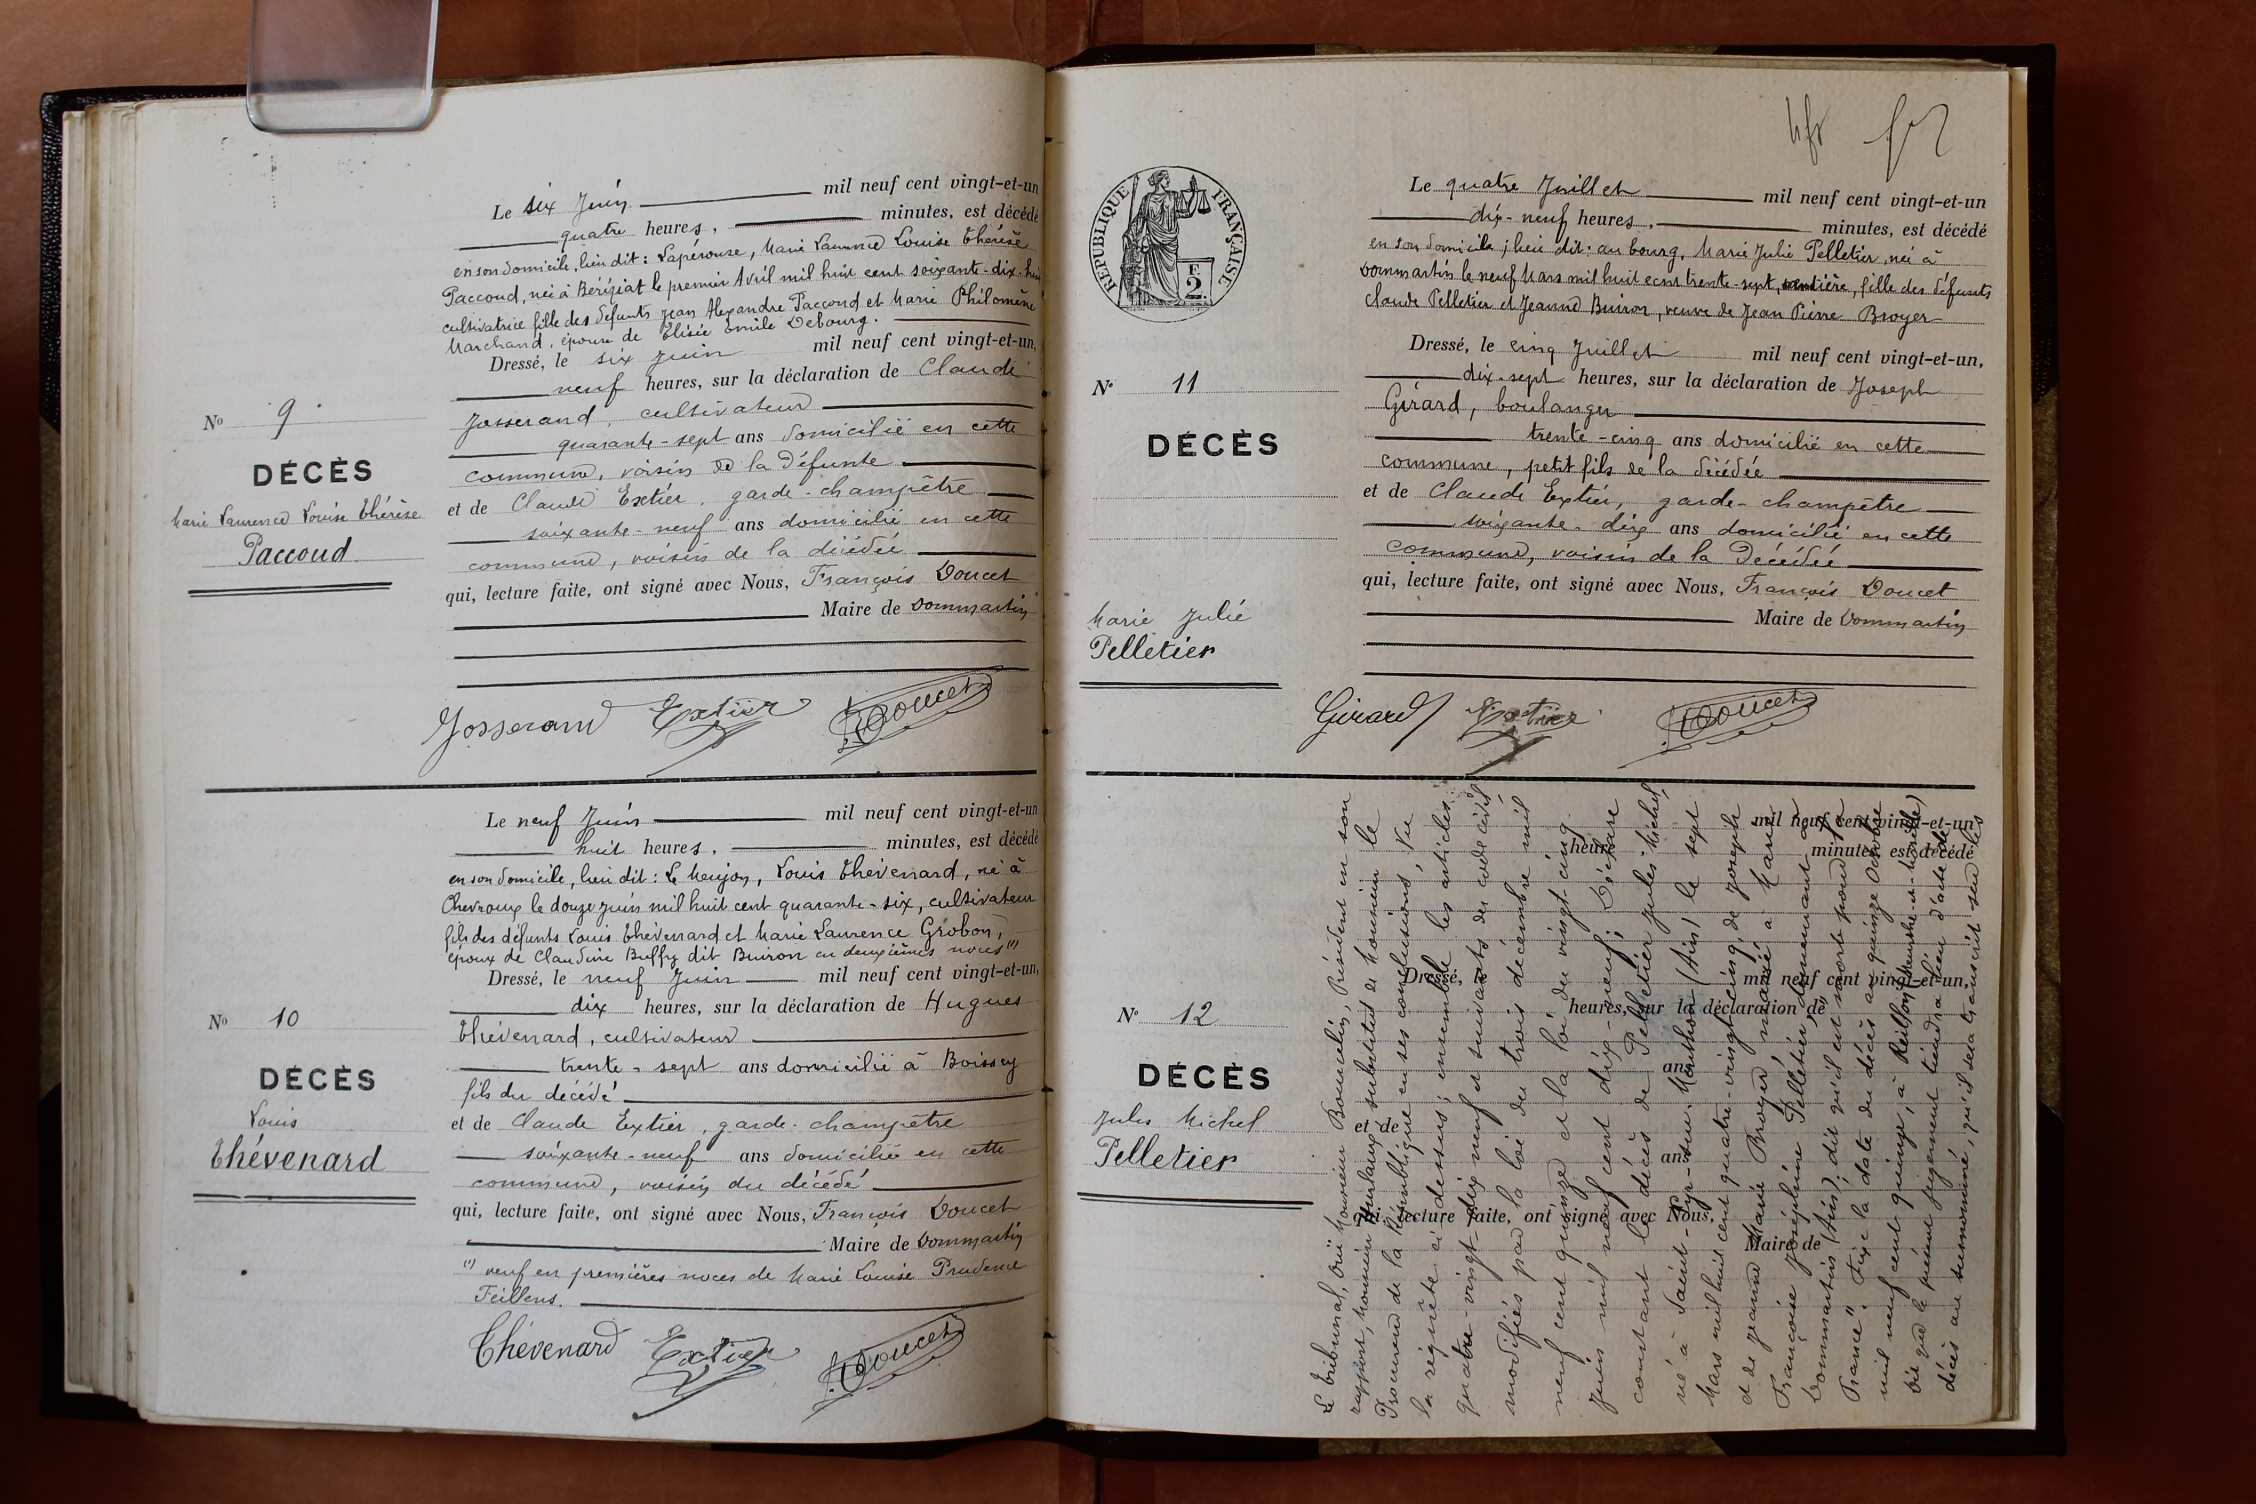 Le six Juin mil neuf cent vingt-et-un
quatre heures, minutes, est décédé
en son domicile, lieu dit : Lapérouze, Marie Laurence Louise Thérèse
Paccoud, née à Beréziat le premier Avril mil huit cent soixante-dix-huit
cultivatrice fille des défunts Jean Alexandre Paccoud et Marie Philomène
Marchand, épouse de Elisée Emile Debourg.
Dressé, le six Juin mil neuf cent vingt-et-un,
neuf heures, sur la déclaration de Claude
Josserand, cultivateur
quarante-sept ans domicilié en cette
commune, voisin de la défunte
et de Claude Extier, garde-champêtre
soixante-neuf ans domicilié en cette
commune, voisin de la décédée
qui, lecture faite, ont signé avec Nous, François Doucet
Maire de Dommartin
No 9
DÉCÈS
Marie Laurence Louise Thérèse
Paccoud
Josserand Extier Doucet
Le neuf Juin mil neuf cent vingt-et-un
huit heures, minutes, est décédé
en son domicile, lieu dit : Le Meujon, Louis Thévenard, né à
Chevroux le douze Juin mil huit cent quarante-six, cultivateur
fils des défunts Louis Thévenard et Marie Laurence Grobon,
époux de Claudine Buffy dit Buiron en deuxièmes noces (1)
Dressé, le neuf Juin mil neuf cent vingt-et-un,
dix heures, sur la déclaration de Hugues
Thévenard, cultivateur
trente-sept ans domicilié à Boissey
fils du décédé
et de Claude Extier, garde-champêtre
soixante-neuf ans domicilié en cette
commune, voisin du décédé
qui, lecture faite, ont signé avec Nous, François Doucet
Maire de Dommartin
(1) veuf en premières noces de Marie Louise Prudence
Feillens.
No 10
DÉCÈS
Louis
Thévenard
Thévenard Extier Doucet
RÉPUBLIQUE FRANÇAISE
2
Le quatre Juillet mil neuf cent vingt-et-un
dix-neuf heures, minutes, est décédé
en son domicile ; lieu dit : au bourg, Marie Julie Pelletier, née à
Dommartin le neuf Mars mil huit cent trente-sept, rentière, fille des défunts
Claude Pelletier et Jeanne Buiron, veuve de Jean Pierre Broyer
Dressé, le cinq Juillet mil neuf cent vingt-et-un,
dix-sept heures, sur la déclaration de Joseph
Girard, boulanger
trente-cinq ans domicilié en cette
commune, petit fils de la décédée
et de Claude Extier, garde-champêtre
soixante-dix ans domicilié en cette
commune, voisin de la Décédée
qui, lecture faite, ont signé avec Nous, François Doucet
Maire de Dommartin
No 11
DÉCÈS
Marie Julie
Pelletier
Girard Extier Doucet
No 12
DÉCÈS
Jules Michel
Pelletier
mil neuf cent vingt-et-un
heures minutes, est décédé
Dressé, mil neuf cent vingt-et-un,
heures, sur la déclaration de
ans
et de
ans
qui, lecture faite, ont signé avec Nous,
Maire de
Le tribunal, Ouï Monsieur Bouvelin, Président en son
rapport, Monsieur substitut de Monsieur le
Procureur de la République en ses conclusions, Vu
la requête ci dessus, ensemble les articles
quatre-vingt-dix neuf et suivants du code civil
modifiés par la loi du trois décembre mil
neuf cent quinze et la loi du vingt-cinq
juin mil neuf cent dix-neuf ; Déclare
constant le décès de Pelletier Jules Michel,
né à Saint-Cyr-sur-Menthon (Ain) le sept
Mars mil huit cent quatre-vingt-cinq, de Joseph
et de Jeanne Marie Broyer, marié à Marie
Françoise Joséphine Pelletier, demeurant à
Dommartin (Ain) ; dit qu'il est "mort pour la
France". Fixe la date du décès au quinze Octobre
mil neuf cent quinze, à Reillon (Meurthe-et-Moselle)
Dit que le présent jugement tiendra lieu d'acte de
décès au susnommé, qu'il sera transcrit sur les